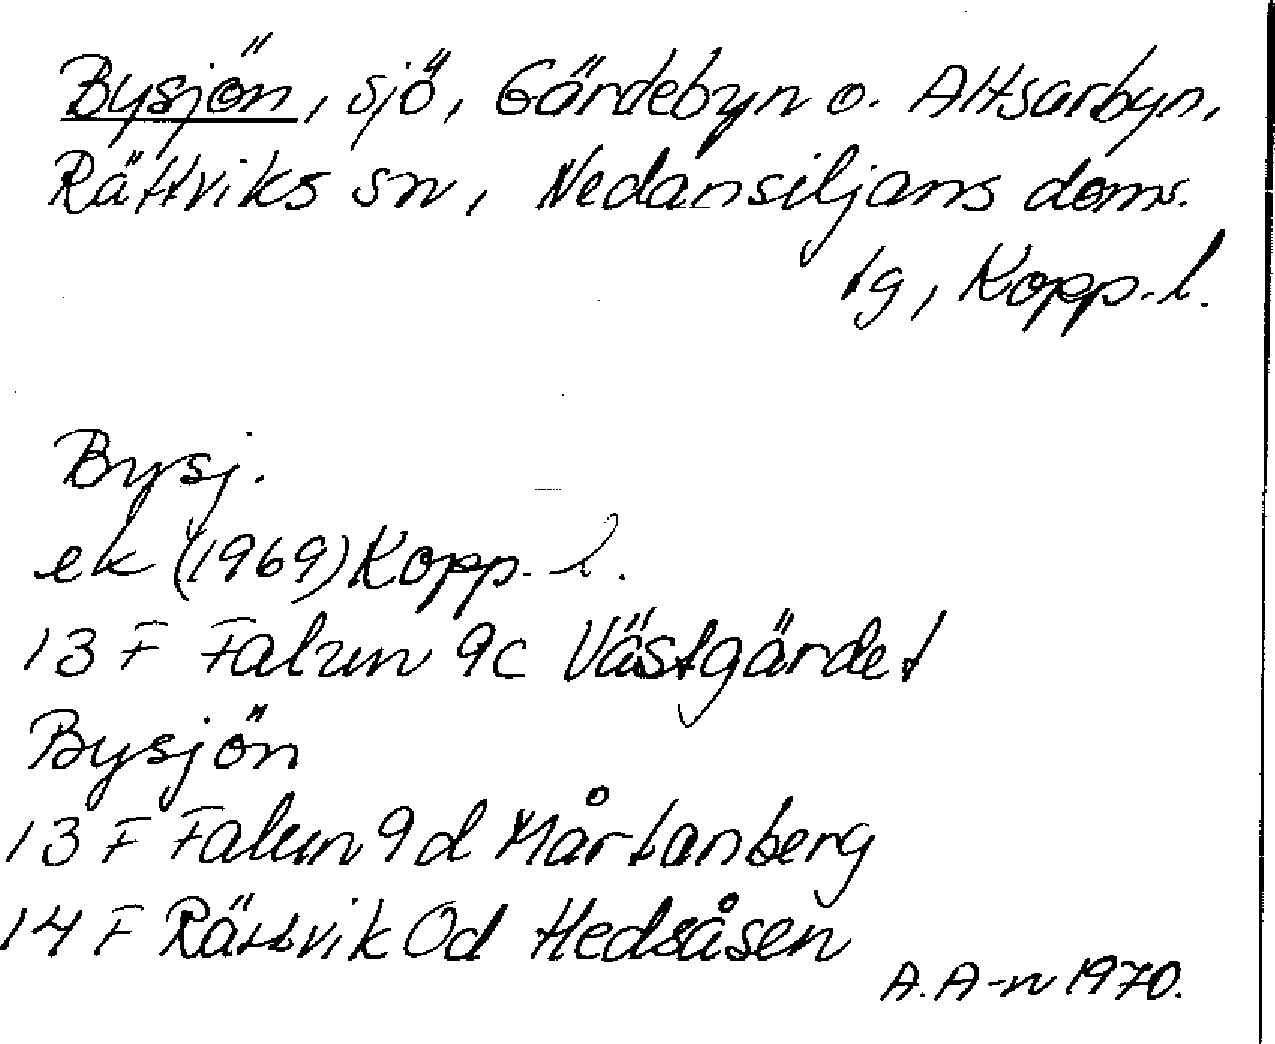 Bysjön, sjö, Gärdebyn o. Altsarbyn,
Rättviks sn, Nedansiljans doms.
tg, Kopp.l.
Bysj.
ek (1969) Kopp. l.
13 F Falun 9c Västgärdet
Bysjön
13 F Falun 9d Mårtanberg
14 F Rättvik 0d Hedsåsen
A. A-n 1970.